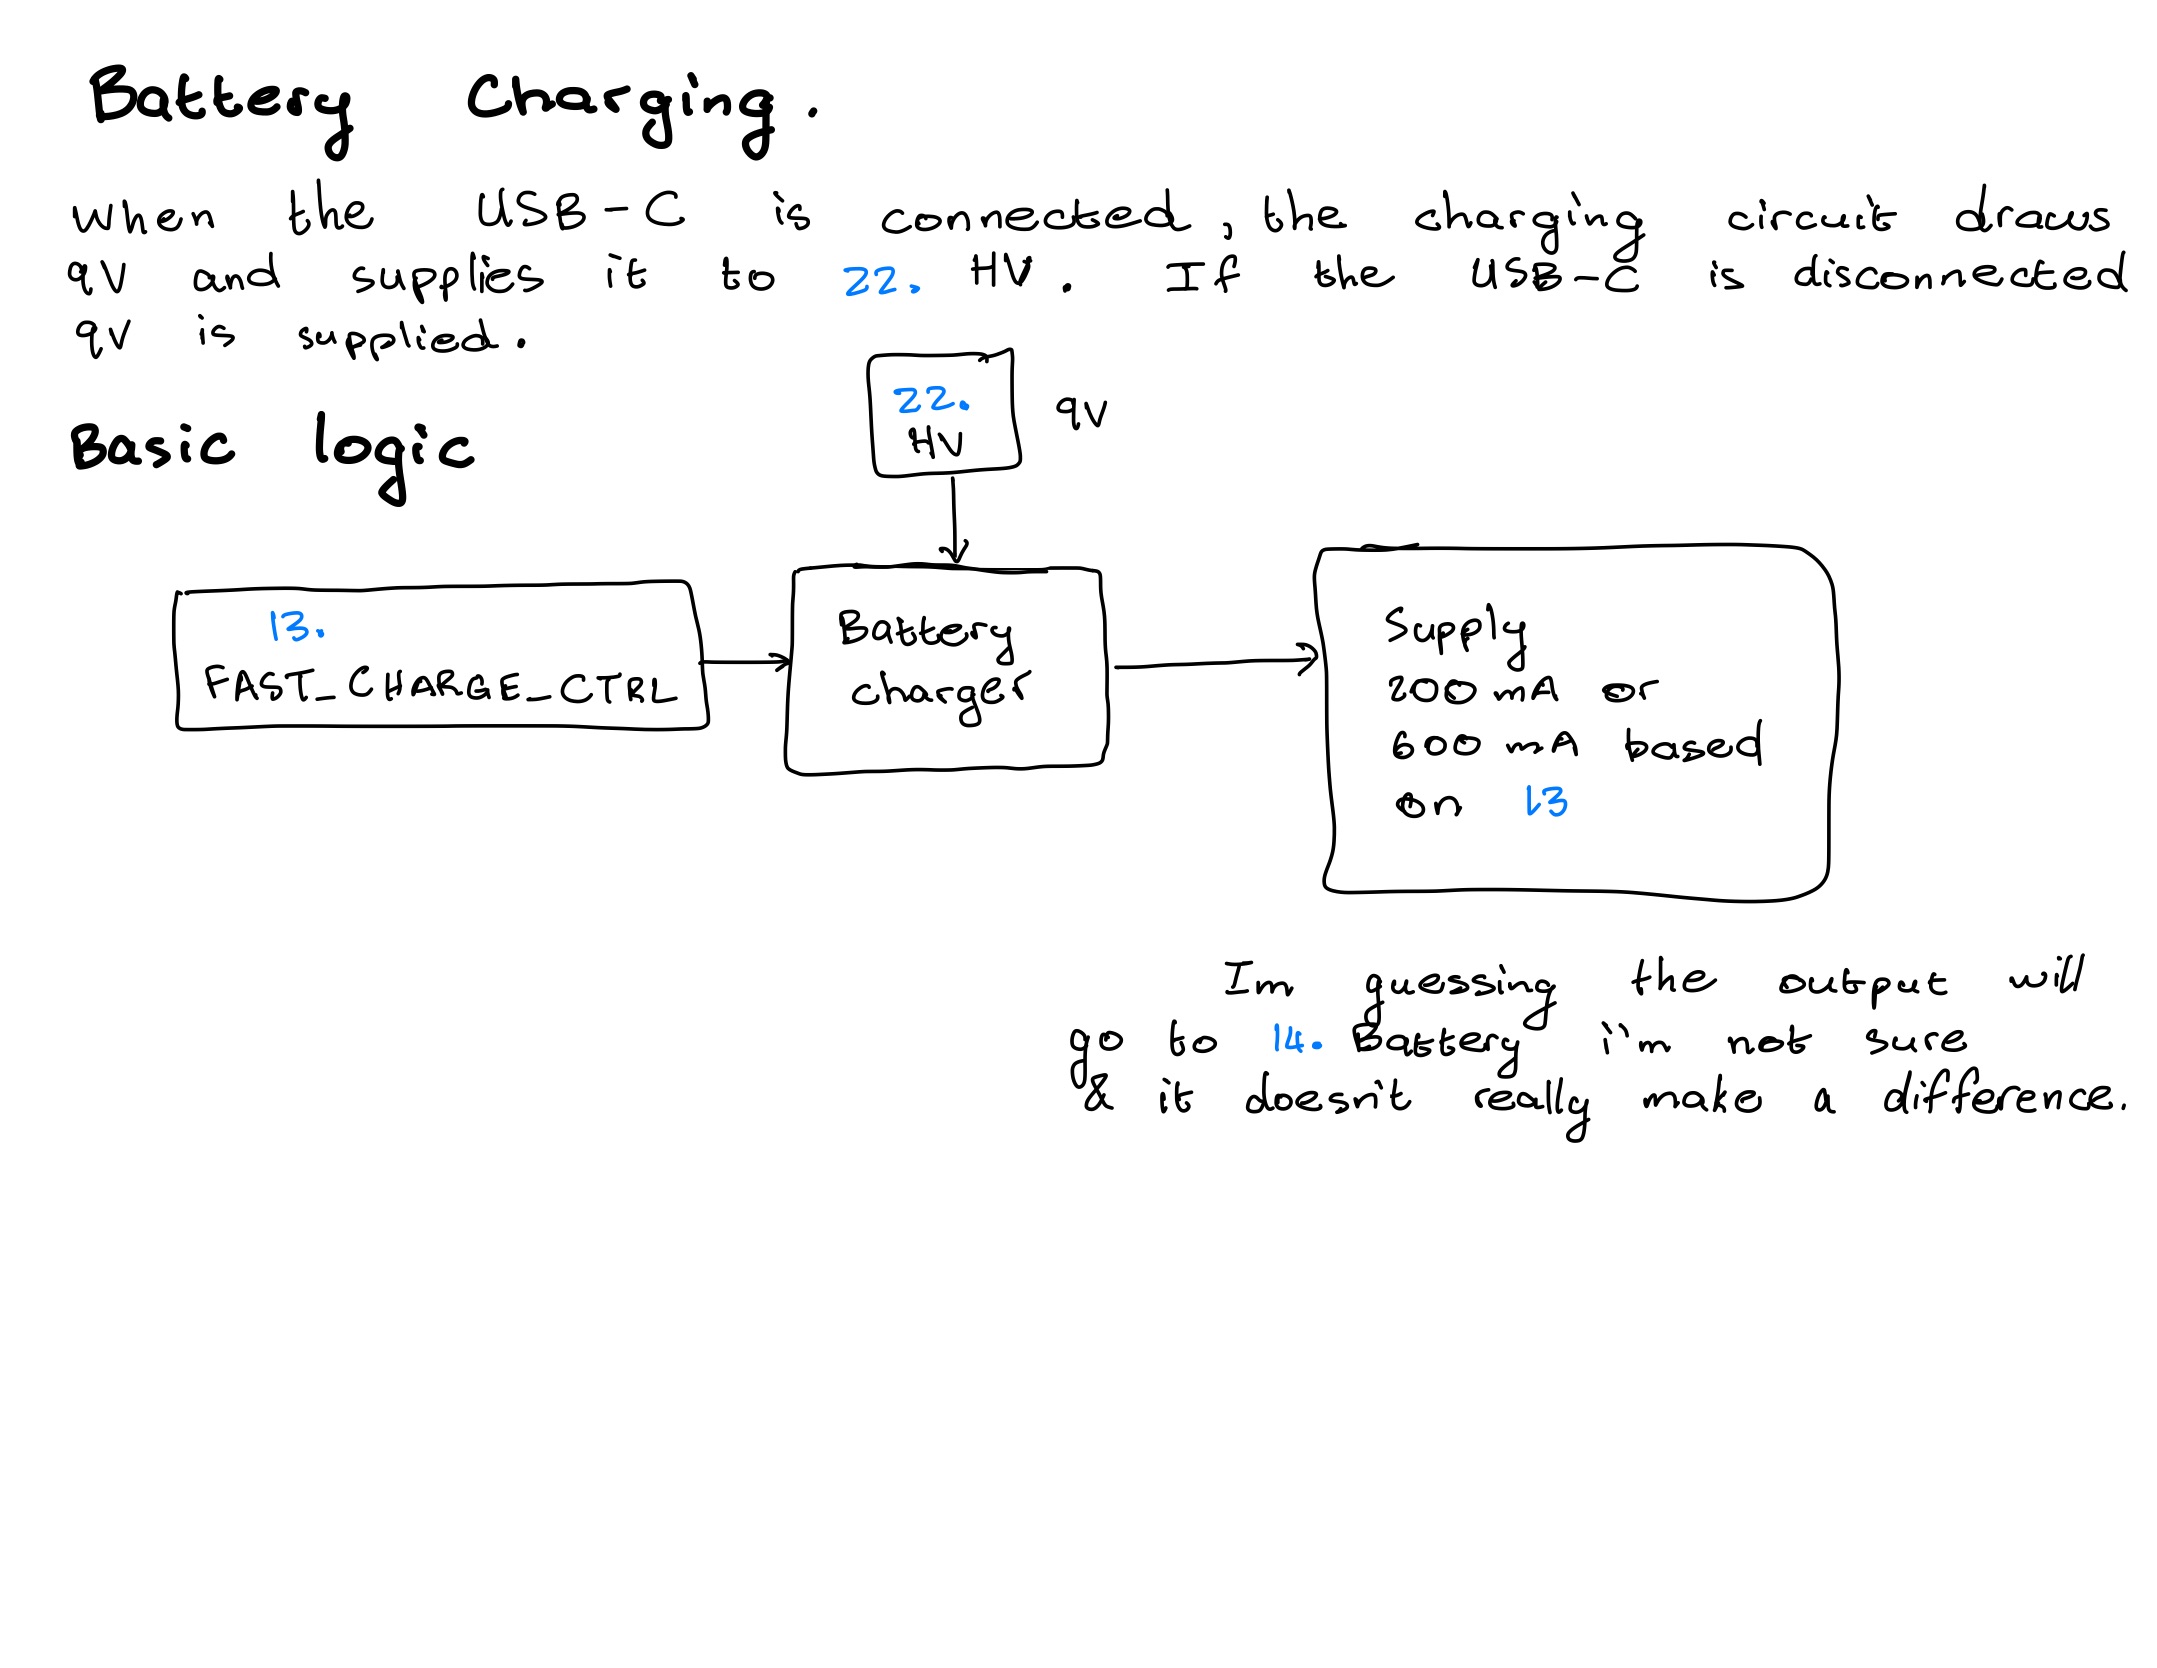 Battery Charging.
When the USB-C is connected, the charging circuit draws
9V and supplies it to 22. HV. If the USB-C is disconnected
9V is supplied.
22.
HV
9V
Basic logic
13.
FAST_CHARGE_CTRL
Battery
charger
Supply
200 mA or
600 mA based
on 13
Im guessing the output will
go to 14. Battery i'm not sure
& it doesn't really make a difference.